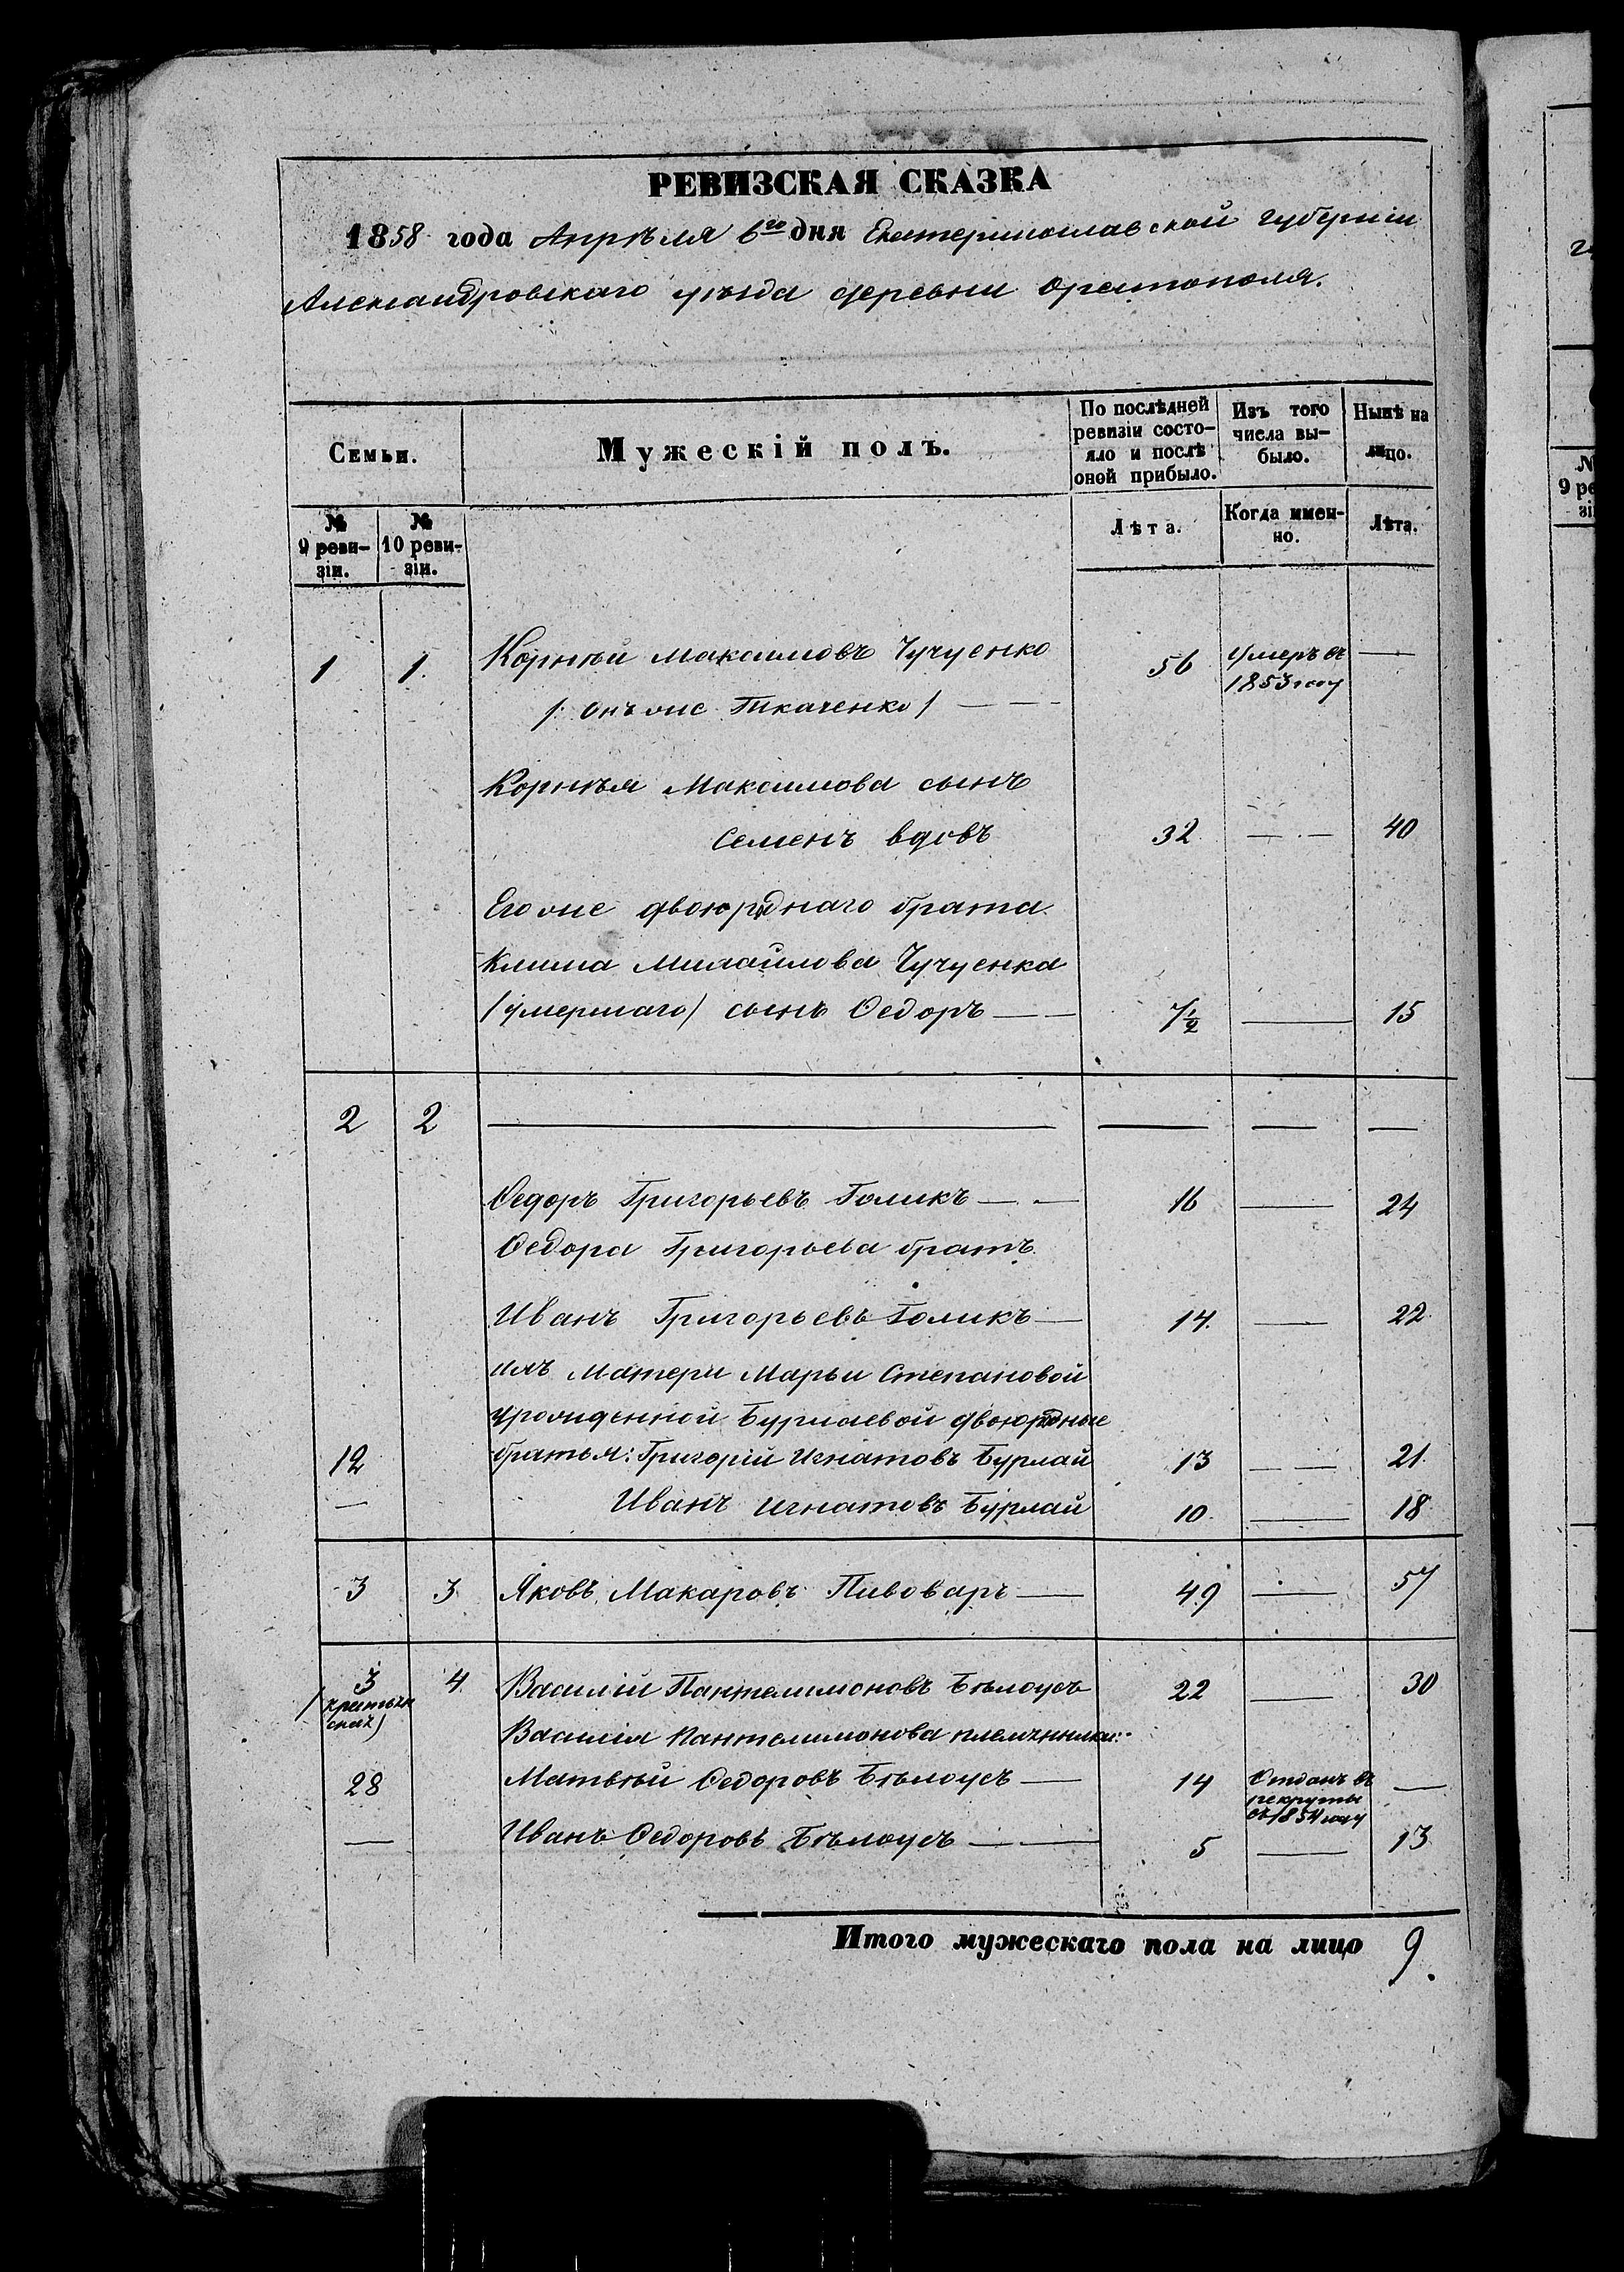 РЕВИЗСКАЯ СКАЗКА
1858 года Апрѣля 6го дня Екатеринославской губерніи
Александровскаго уѣзда деревни Орестополя.
Семьи.
Мужескій полъ.
По послѣдней ревизіи состояло и послѣ оной прибыло.
Изъ того числа выбыло.
Нынѣ на лицо.
№ 9 ревизіи.
№ 10 ревизіи.
Лѣта.
Когда именно.
Лѣта.
1 1. Корнѣй Максимовъ Чучуенко 56 умеръ въ 1853 году —
/: онъ же Ткаченко / — —
Корнѣя Максимова сынъ
Семенъ вдовъ 32 — · — 40
Его же двоюроднаго брата
Клима Михайлова Чучуенка
/умершаго/ сынъ Ѳедоръ — — 7½ — 15
2 2 — — — —
Ѳедоръ Григорьевъ Голикъ — — 16 — 24
Ѳедора Григорьева братъ
Иванъ Григорьевъ Голикъ — 14. — 22
ихъ матери Марьи Степановой
урожденной Бурлаевой двоюродные
12 братья: Григорій Игнатовъ Бурлай 13 — — 21.
— Иванъ Игнатовъ Бурлай 10. — 18
3 3 Яковъ Макаровъ Пивоваръ — 49 — 57
3 4 Василій Пантелимоновъ Бѣлоусъ 22 — 30
Василія Пантелимонова племянники:
28 Матвѣй Ѳедоровъ Бѣлоусъ — 14 Отданъ въ рекруты въ 1854 году —
— Иванъ Ѳедоровъ Бѣлоусъ — — 5 — 13
Итого мужескаго пола на лицо 9.
№
9 ре
зі